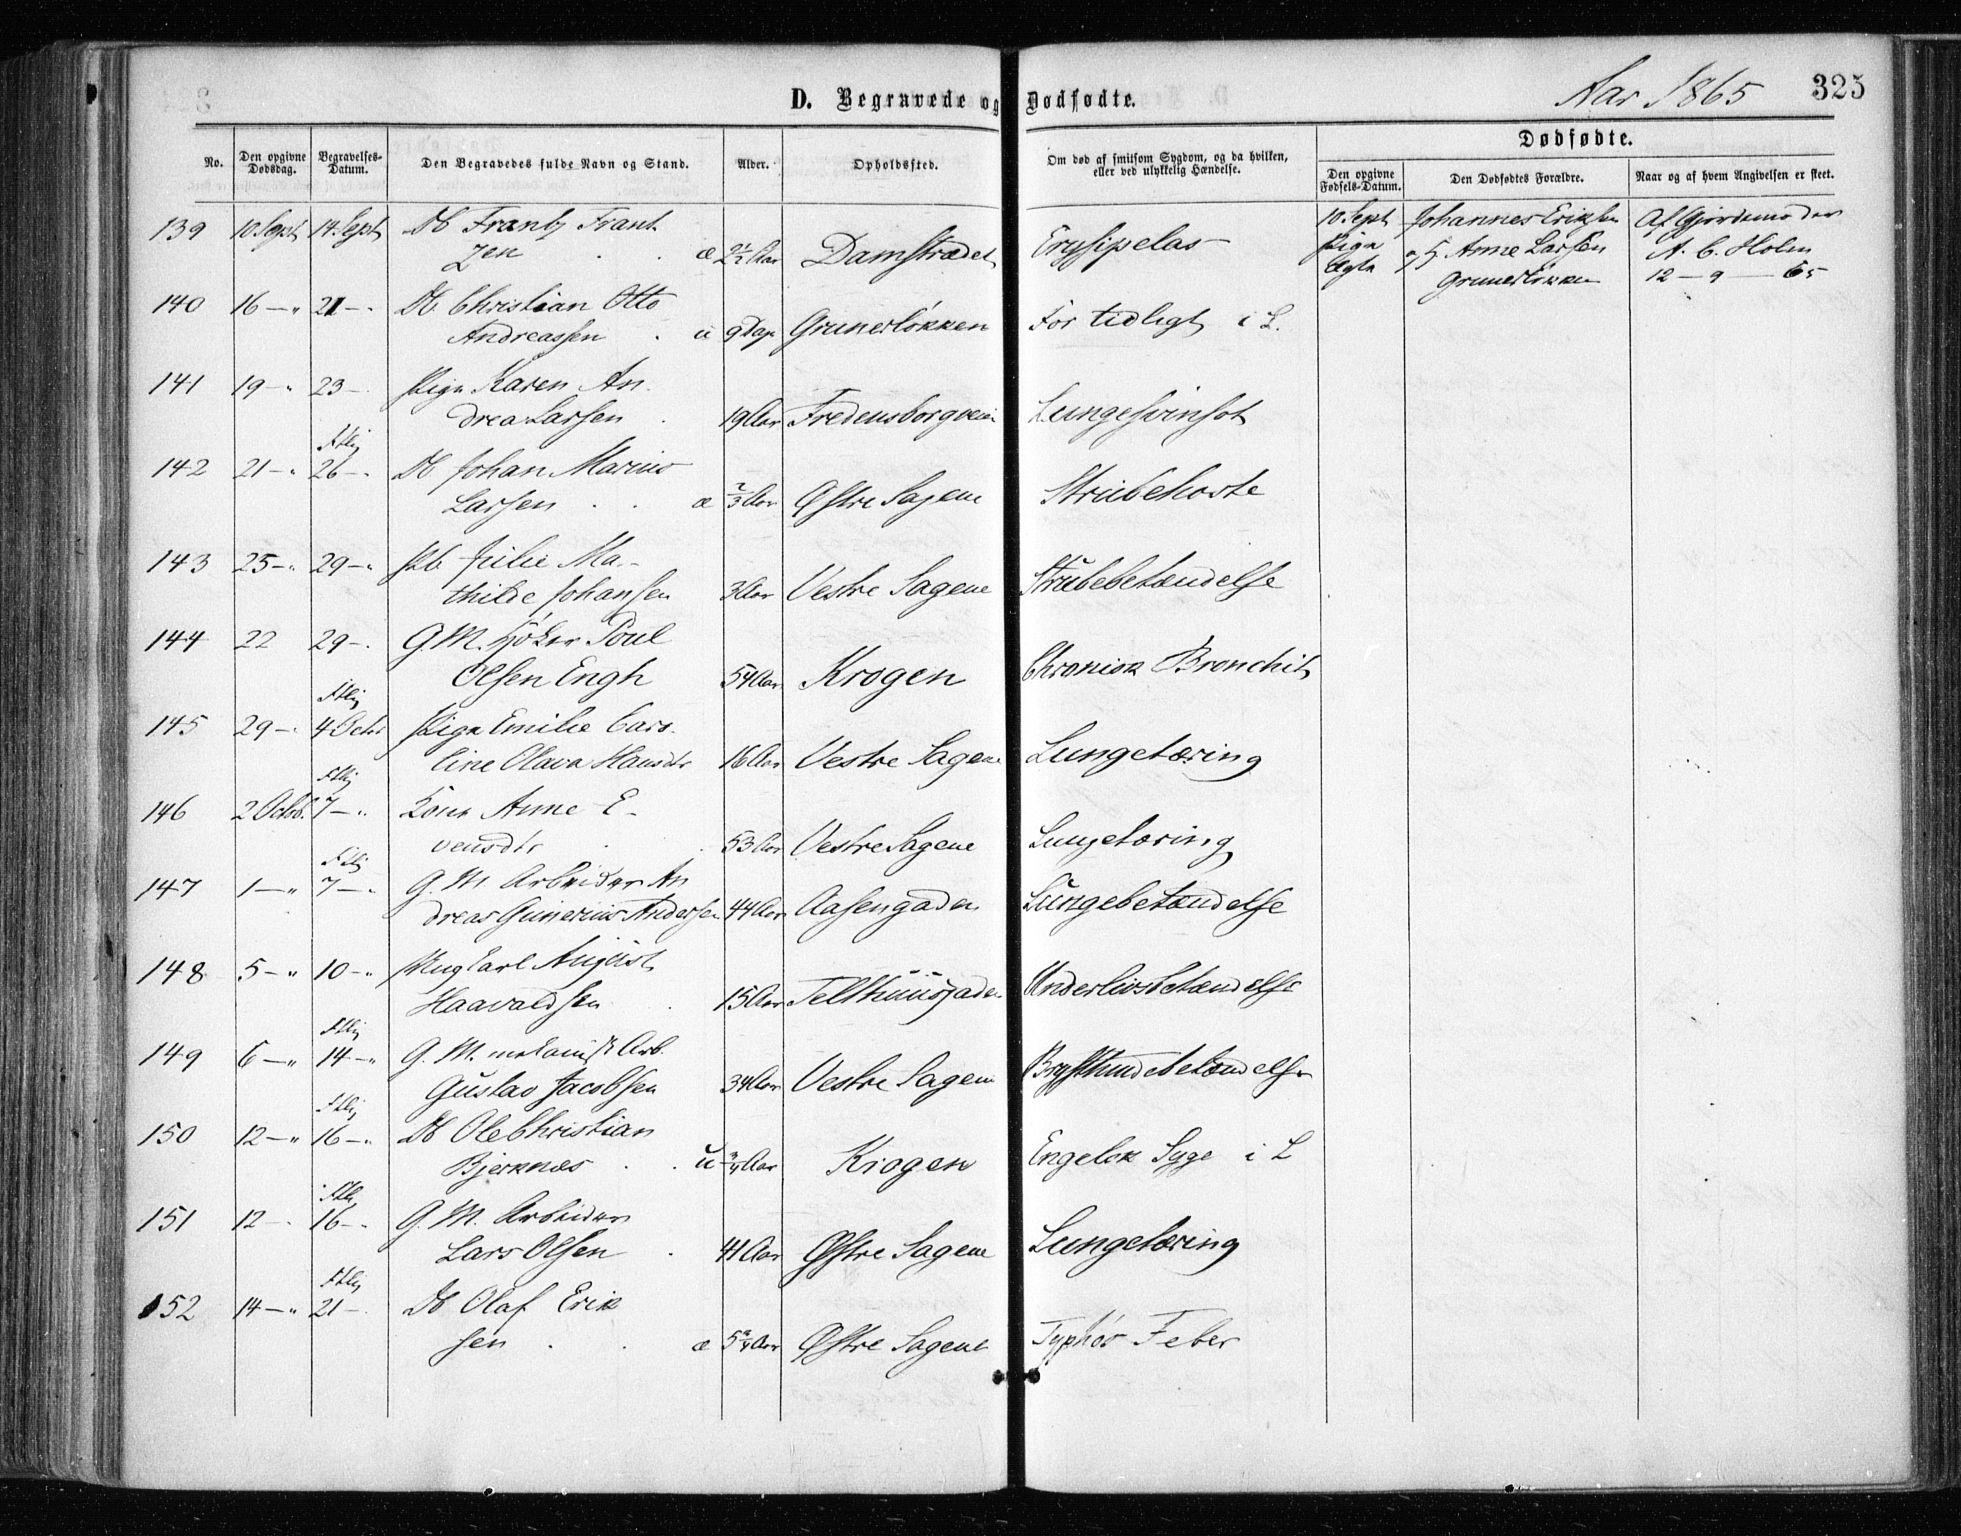 D. Begravede og Dødfødte.
Aar 1865
325
No.
Den opgivne Dødsdag.
Begravelses-Datum.
Den Begravedes fulde Navn og Stand.
Alder.
Opholdssted.
Om død af smitsom Sygdom, og da hvilken,
eller ved ulykkelig Hændelse.
Dødfødte.
Den opgivne Fødsels-Datum.
Den Dødfødtes Forældre.
Naar og af hvem Angivelsen er skeet.
139 10 Sept 14 Sept Db Frantz Frant
zen . . æ Aar Damstrædet Erysipelas
10 Sept Johannes Eriksen Af Gjordemoder
Pige og H. Anne Larsen A. C. Holm
ægte Grunerløkken 12 – 9 – 65
140 16 – " 21 – . Db Christian Otto
Andreassen . u 9 Dage Grunerløkken For tidligt i L.
141 19 – " 23 – Pige Karen An
drea Larsen . 19 Aar Fredensborgveien Lungesvinsot
142 21 – " 26 – . Db Johan Marius
Larsen . . æ 2/3 Aar Østre Sagene Strubehoste
143 25 – " 29 – " Pb Julie Ma-
thilde Johansen 3 Aar Vestre Sagene Strubebetændelse
144 22 29 – . G. M. Høker Poul
Olsen Engh 54 Aar Krogen Chronisk Bronchit
145 29 – . 4 Octr Pige Emilie Caro
line Olava Hansdr 16 Aar Vestre Sagene Lungetæring
146 2 Octob. 7 – " Kone Anne E-
vensdtr . . 53 Aar Vestre Sagene Lungetæring
147 1 – " 7 – . G. M. Arbeider An
dreas Gunerius Andersen 44 Aar Aasengaden Lungebetændelse
148 5 – " 10 – " Ung Carl August
Haavaldsen . 15 Aar Telthuusgaden Underlivsbetændelse
149 6 – " 14 – " G. M. mekanisk Arb.
Gustav Jacobsen 34 Aar Vestre Sagene Brysthindebetændelse
150 12 – " 16 – " Db Ole Christian
Bjerknæs . . u 3/4 Aar Krogen Engelsk Syge i L
151 12 – 16 – . G. M. Arbeider
Lars Olsen . 41 Aar Østre Sagene Lungetæring
152 14 – " 21 – . Db Olaf Erik
sen . . æ 5 3/4 Aar Østre Sagene Typhös Feber